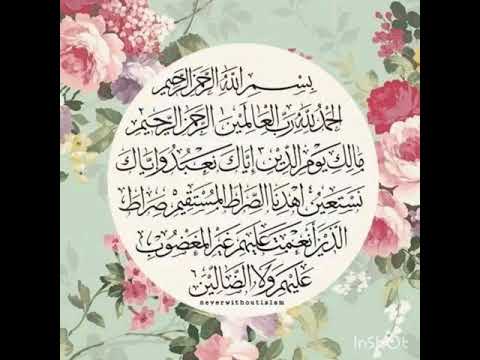 بِسْمِ اللهِ الرَّحْمَنِ الرَّحِيمِ
الْحَمْدُ لِلَّهِ رَبِّ الْعَالَمِينَ الرَّحْمَنِ الرَّحِيمِ
مَالِكِ يَوْمِ الدِّينِ إِيَّاكَ نَعْبُدُ وَإِيَّاكَ
نَسْتَعِينُ اهْدِنَا الصِّرَاطَ الْمُسْتَقِيمَ صِرَاطَ
الَّذِينَ أَنْعَمْتَ عَلَيْهِمْ غَيْرِ الْمَغْضُوبِ
عَلَيْهِمْ وَلَا الضَّالِّينَ
neverwithoutislam
InShOt